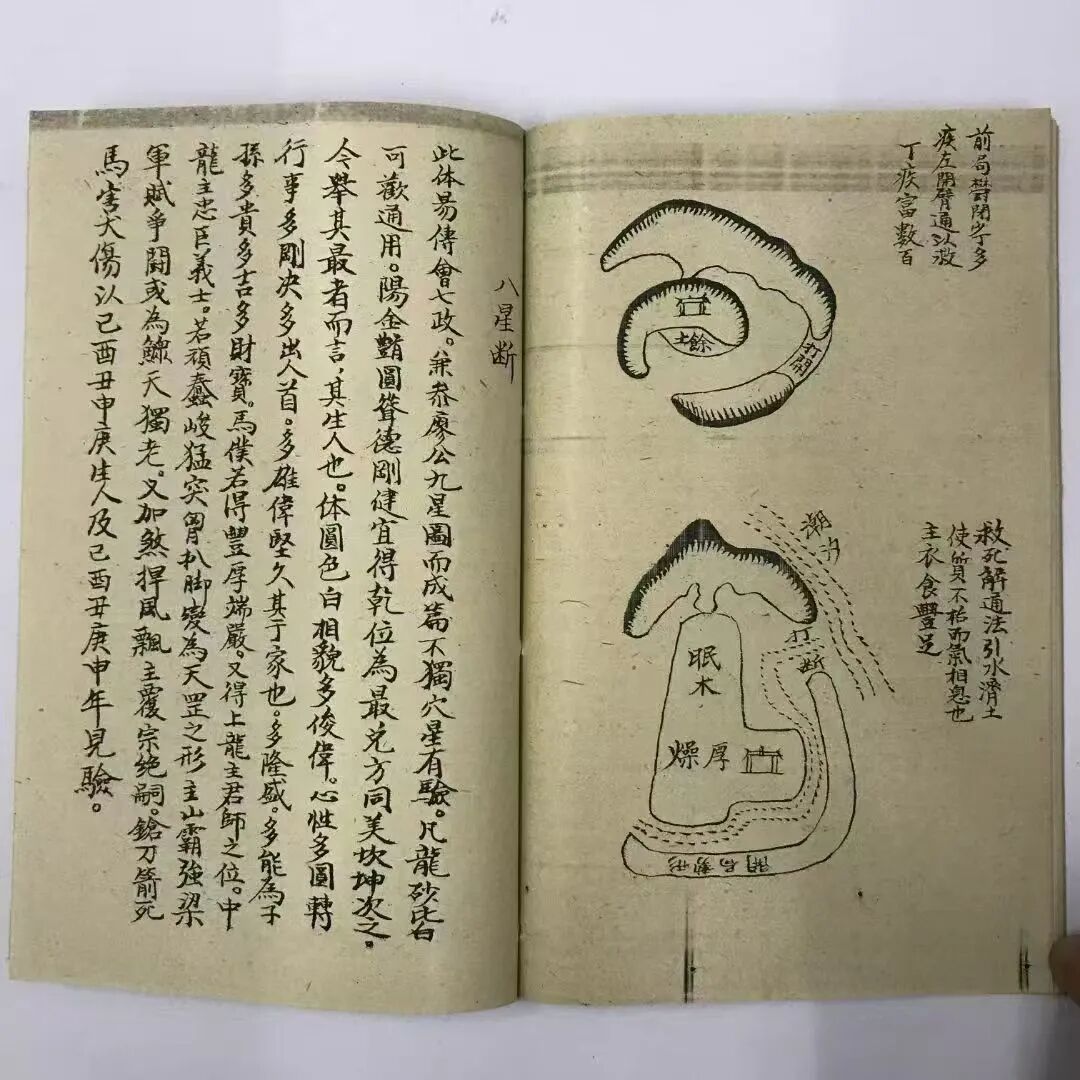 前局欝閉字多
疾左開臂通以救
丁疾富数百
餘
土
打開
救死解通法引水濟土
使質不枯而氣相息也
主衣食豐足
潮
打
断
眠木
燥厚
開局動形
八星断
此体易傳會七政。兼叅廖公九星圖而成篇不獨穴星有驗。凡龍砂皆
可歡通用。陽金豔圓聳德剛健宜得乾位為最兌方同美坎坤次之。
令舉其最者而言，其生人也。体圓色白相貌多俊偉。心性多圓轉
行事多剛决多出人首。多雄偉堅久其于家也。多隆盛。多能為子
孫多貴多吉多財寶。馬僕若得豐厚端嚴。又得上龍主君師之位。中
龍主忠臣義士。若頑蠢峻猛突胷扒脚變為天罡之形主山霸強梁
軍賊爭鬪或為鰥夭獨老。又加煞捍風飄主覆宗绝嗣。鎗刀箭死
馬害犬傷以己酉丑申庚生人及己酉丑庚申年見驗。